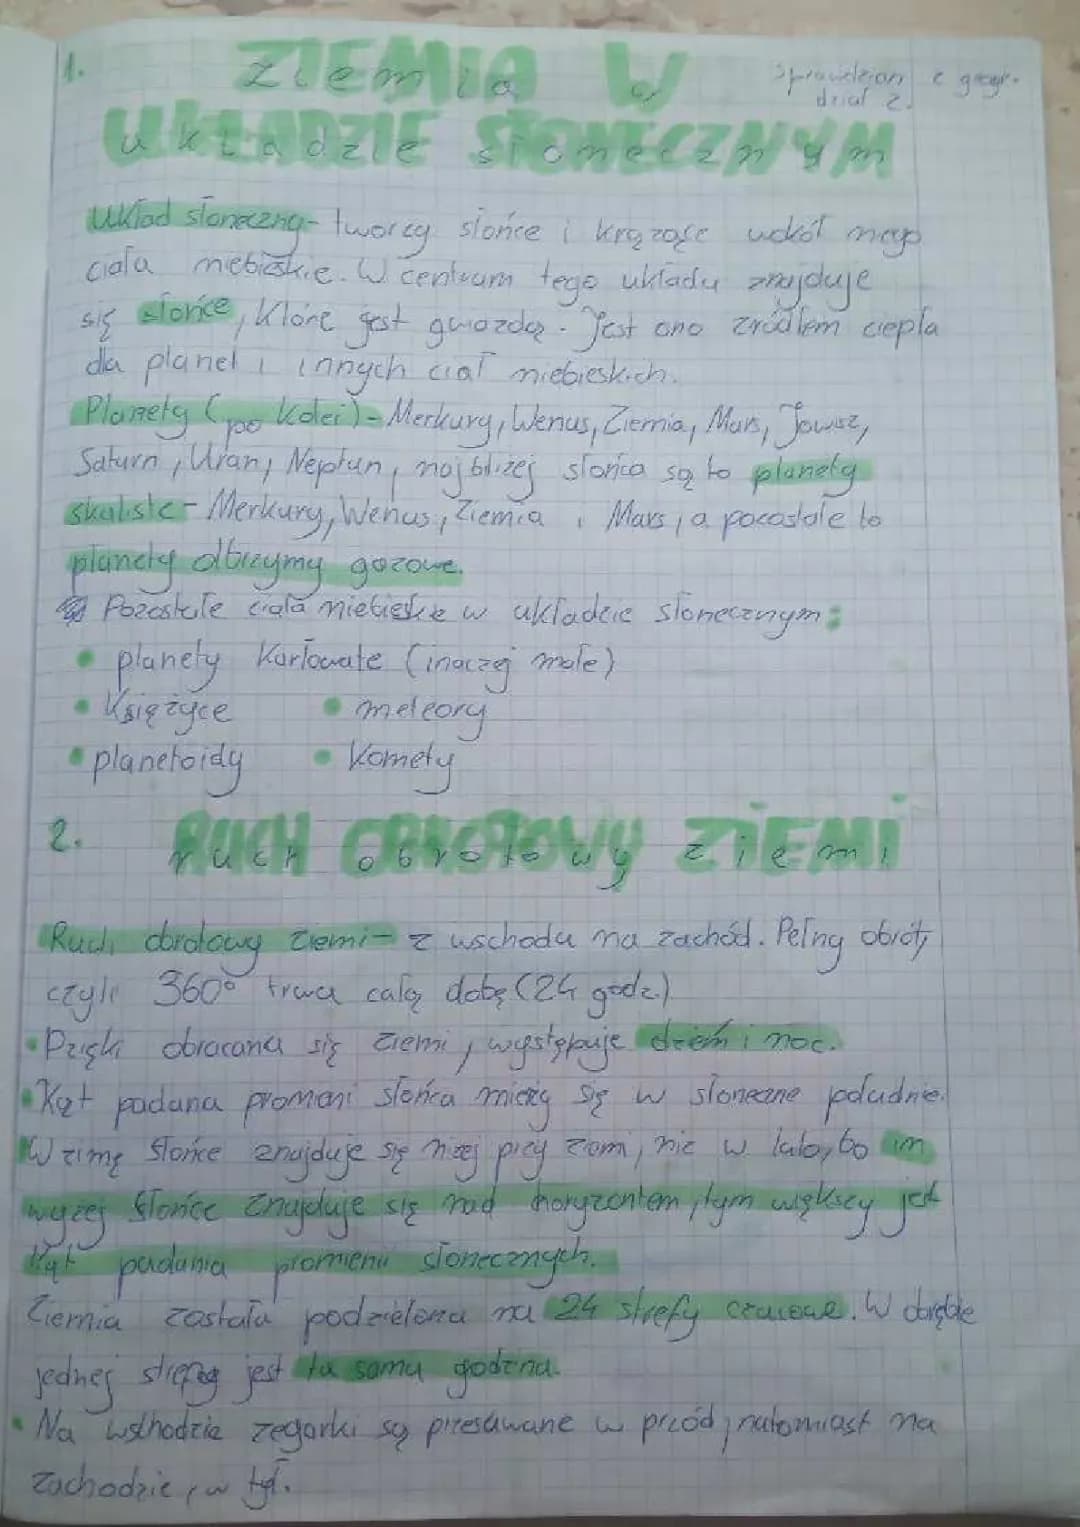 1. Ziemia w
układzie słonecznym
sprawdzian z geogr.
dział 2.
Układ słoneczny - tworzy słońce i krążące wokół niego
ciała niebieskie. W centrum tego układu znajduje
się słońce, które jest gwiazdą. Jest ono źródłem ciepła
dla planet i innych ciał niebieskich.
Planety (po kolei) - Merkury, Wenus, Ziemia, Mars, Jowisz,
Saturn, Uran, Neptun, najbliżej słońca są to planety
skaliste - Merkury, Wenus, Ziemia i Mars, a pozostałe to
planety olbrzymy gazowe.
Pozostałe ciała niebieskie w układzie słonecznym:
• planety karłowate (inaczej małe)
• Księżyce • meteory
• planetoidy • Komety
2. ruch obrotowy ziemi
Ruch obrotowy ziemi - z wschodu na zachód. Pełny obrót,
czyli 360° trwa całą dobę (24 godz.)
• Dzięki obracaniu się ziemi, występuje dzień i noc.
• Kąt padana promieni słońca mierzy się w słoneczne południe.
W zimę słońce znajduje się niżej przy ziemi, niż w lato, bo im
wyżej słońce znajduje się nad horyzontem, tym większy jest
kąt padania promieni słonecznych.
Ziemia została podzielona na 24 strefy czasowe. W obrębie
jednej strefy jest ta sama godzina.
• Na wschodzie zegarki są przesuwane w przód, natomiast na
zachodzie, w tył.